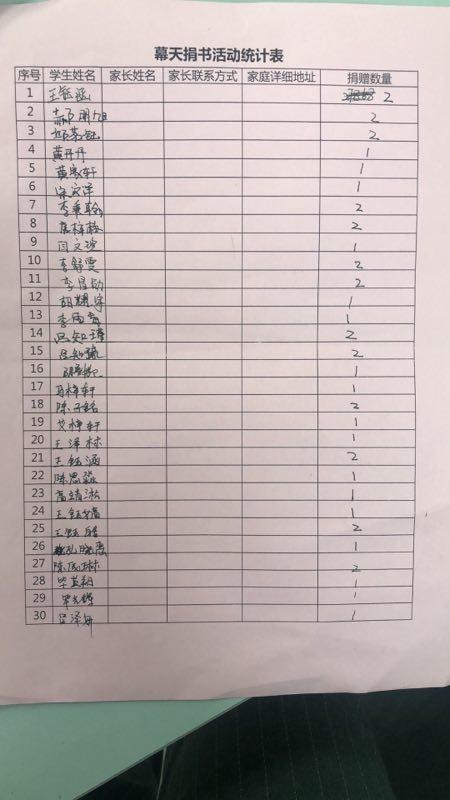 幕天捐书活动统计表
序号 学生姓名 家长姓名 家长联系方式 家庭详细地址 捐赠数量
1 王钰涵 2
2 2
3 2
4 黄丹丹 1
5 黄 轩 1
6 宋 泽 1
7 李秉翰 2
8 2
9 闫文 1
10 李舒雯 2
11 李昌 2
12 胡耀宇 1
13 李雨 1
14 吕知瑾 2
15 吕知 2
16 1
17 马梓轩 1
18 陈子铭 2
19 艾梓轩 1
20 王泽林 1
21 王钰涵 2
22 陈思淼 1
23 高靖淞 1
24 王钰 1
25 王钰 2
26 孔晓 1
27 陈 林 2
28 毕英翔 1
29 1
30 吕泽妍 1